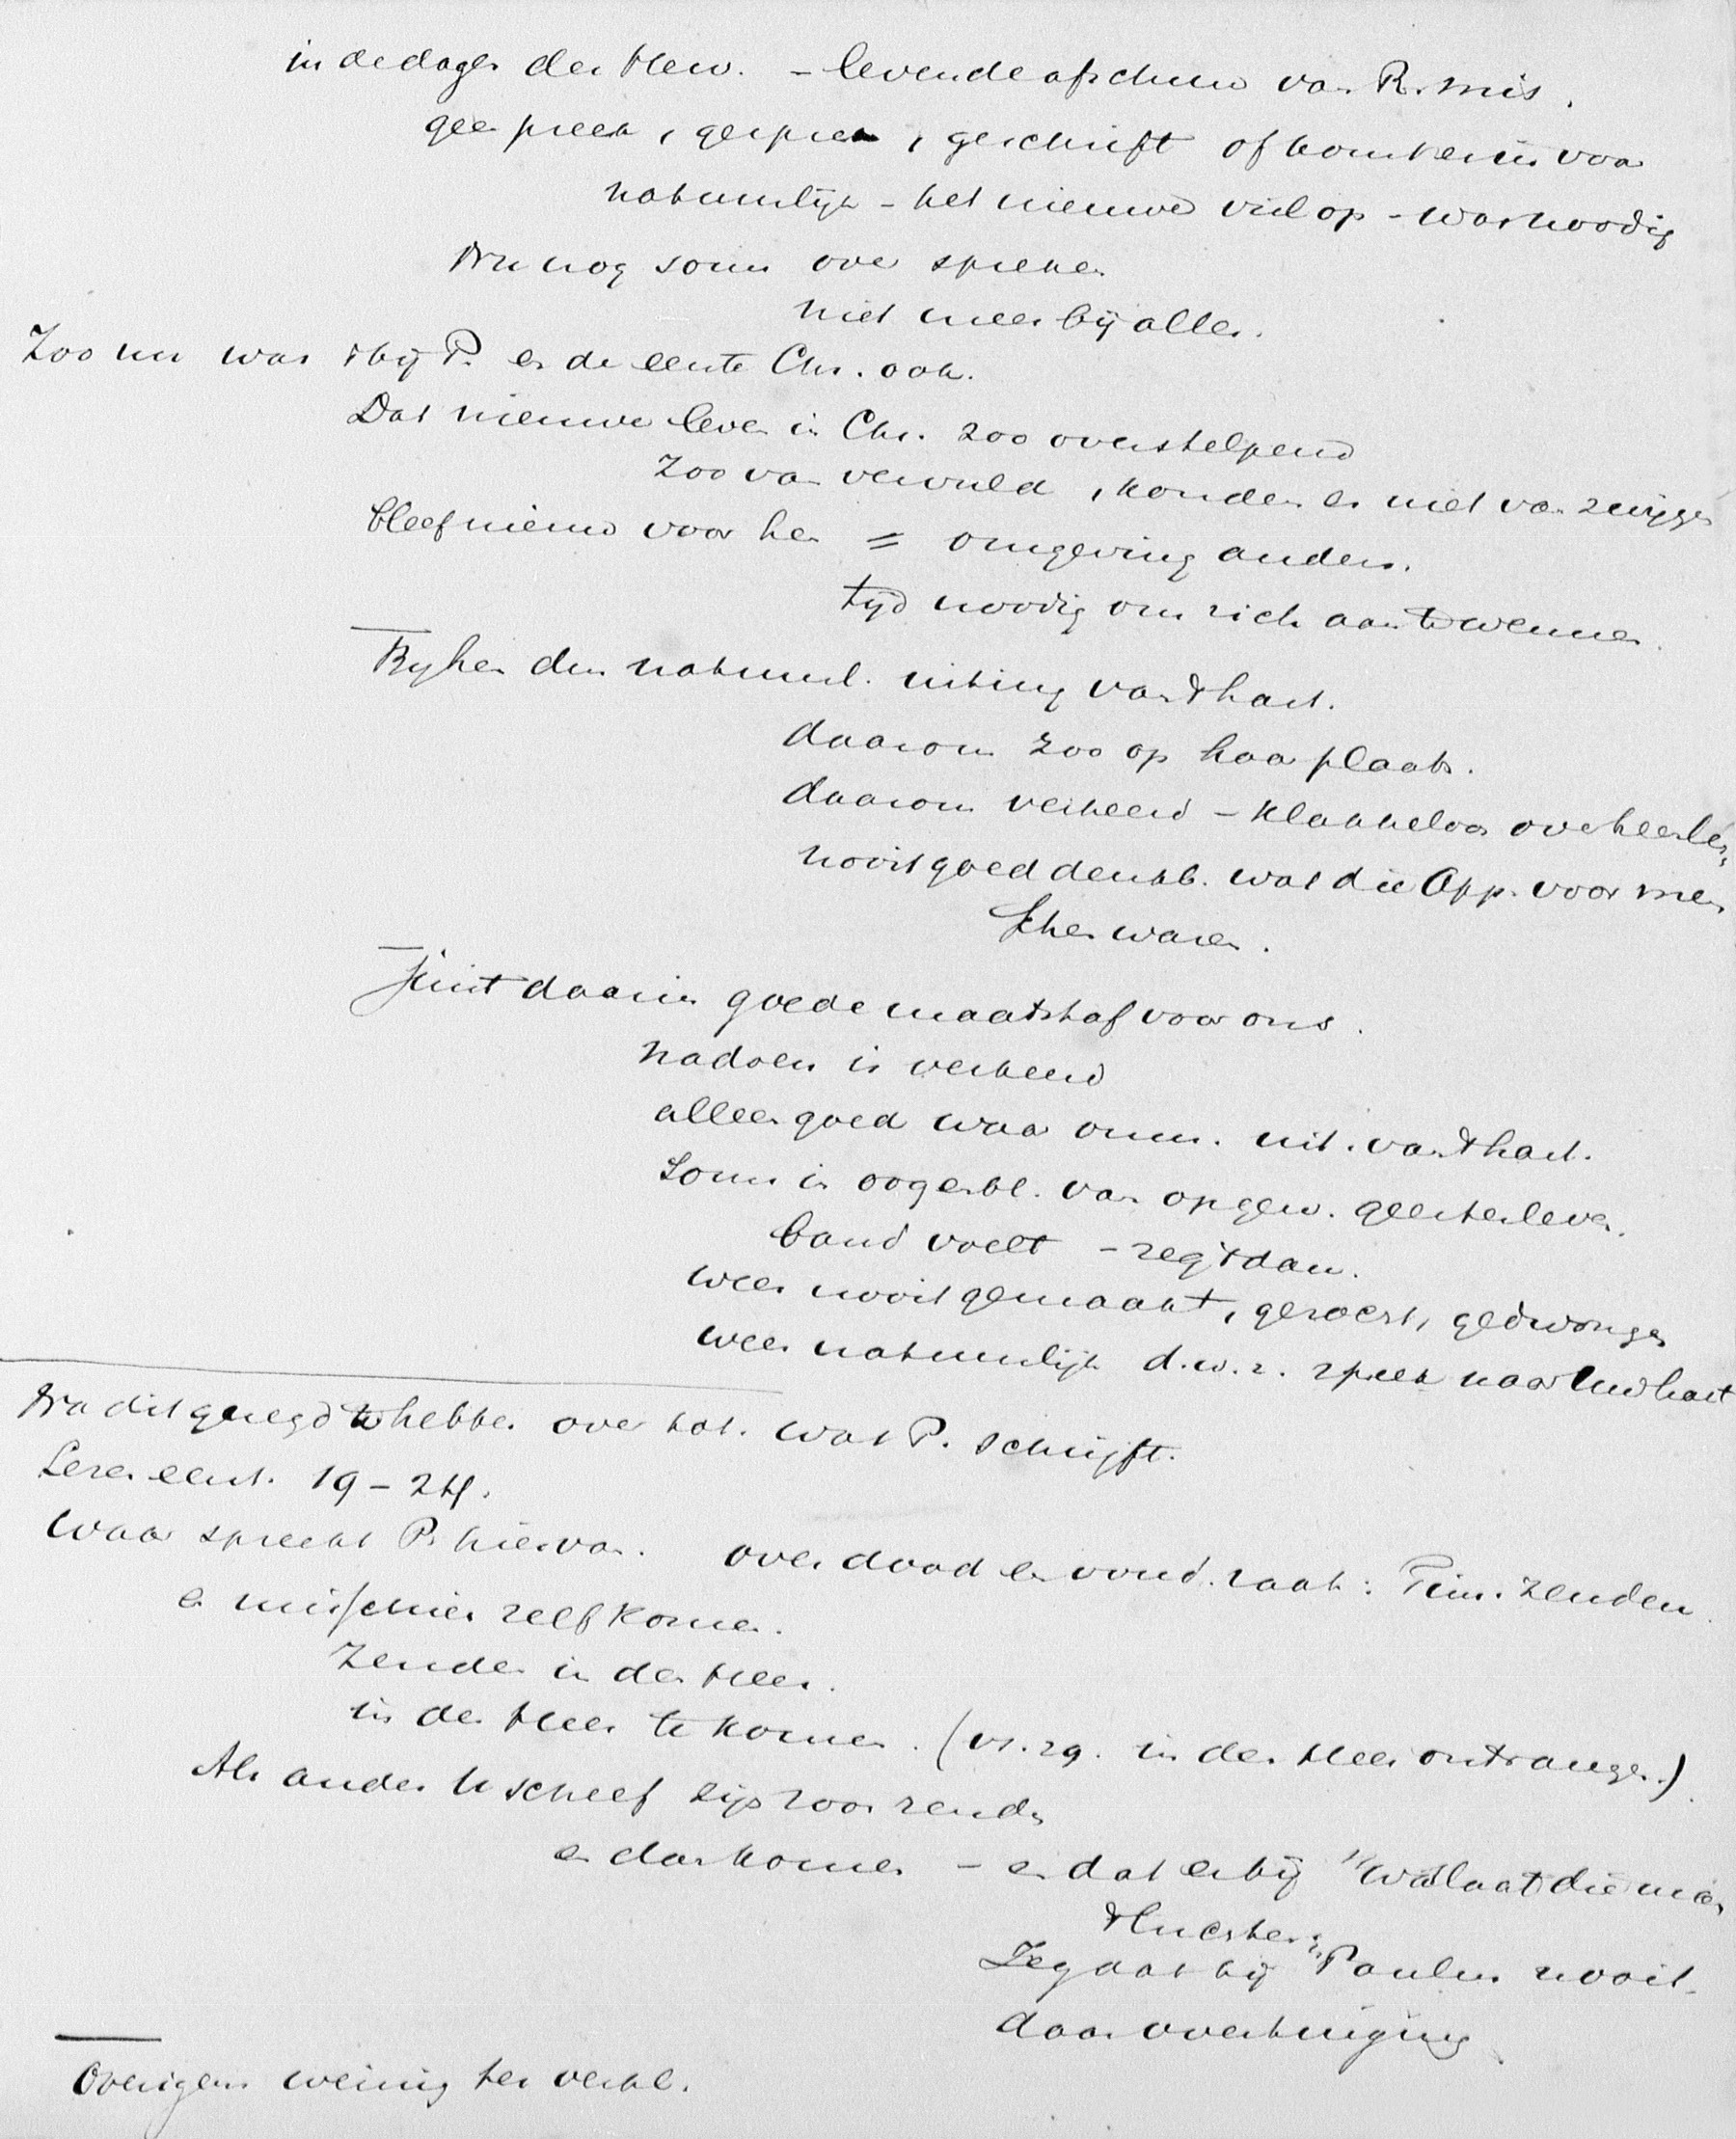 in de dagen der Herv. - levende afschuw van R. mis.
geen preek, gesprek, geschrift of kwam er in voor
natuurlijk - het nieuwe viel op - was noodig
Nu nog soms over spreken
niet meer bij alles.
Zoo nu was 't bij P. en de eerste Chr. ook.
Dat nieuwe leven in Chr. zoo overstelpend
Zoo van vervuld, konden er niet van zwijgen
bleef nieuw voor hen = omgeving anders.
tijd noodig om zich aan te wennen.
Bij hen dus natuurl. uiting van 't hart.
daarom zoo op haar plaats.
daarom verkeerd - klakkeloos
nooit goed denkb. wat die App. voor men
schen waren.
Juist daarin goede maatstaf voor ons.
nadoen is verkeerd
alleen goed waar onm. uit. van 't hart.
Soms in oogenbl. van opgew. geestesleven.
band voelt - zeg 't dan.
wees nooit gemaakt, gezocht, gedwongen
wees natuurlijk d.w.z. spreek naar Uw hart
Na dit gezegd te hebben over tot wat P. schrijft.
Lezen eerst. 19 - 24.
Waar spreekt P. hier van. over dood en voud. zaak: Tim. zenden.
en misschien zelf komen.
Zenden in den Heer.
in den Heer te komen. (vs. 29. in den Heer ontvangen.)
Als ander U schreef bijv. zoo zenden
en dan komen - en dat erbij "
't
Zeg dat bij Paulus nooit
daar overtuiging
Overigens weinig ter verkl.